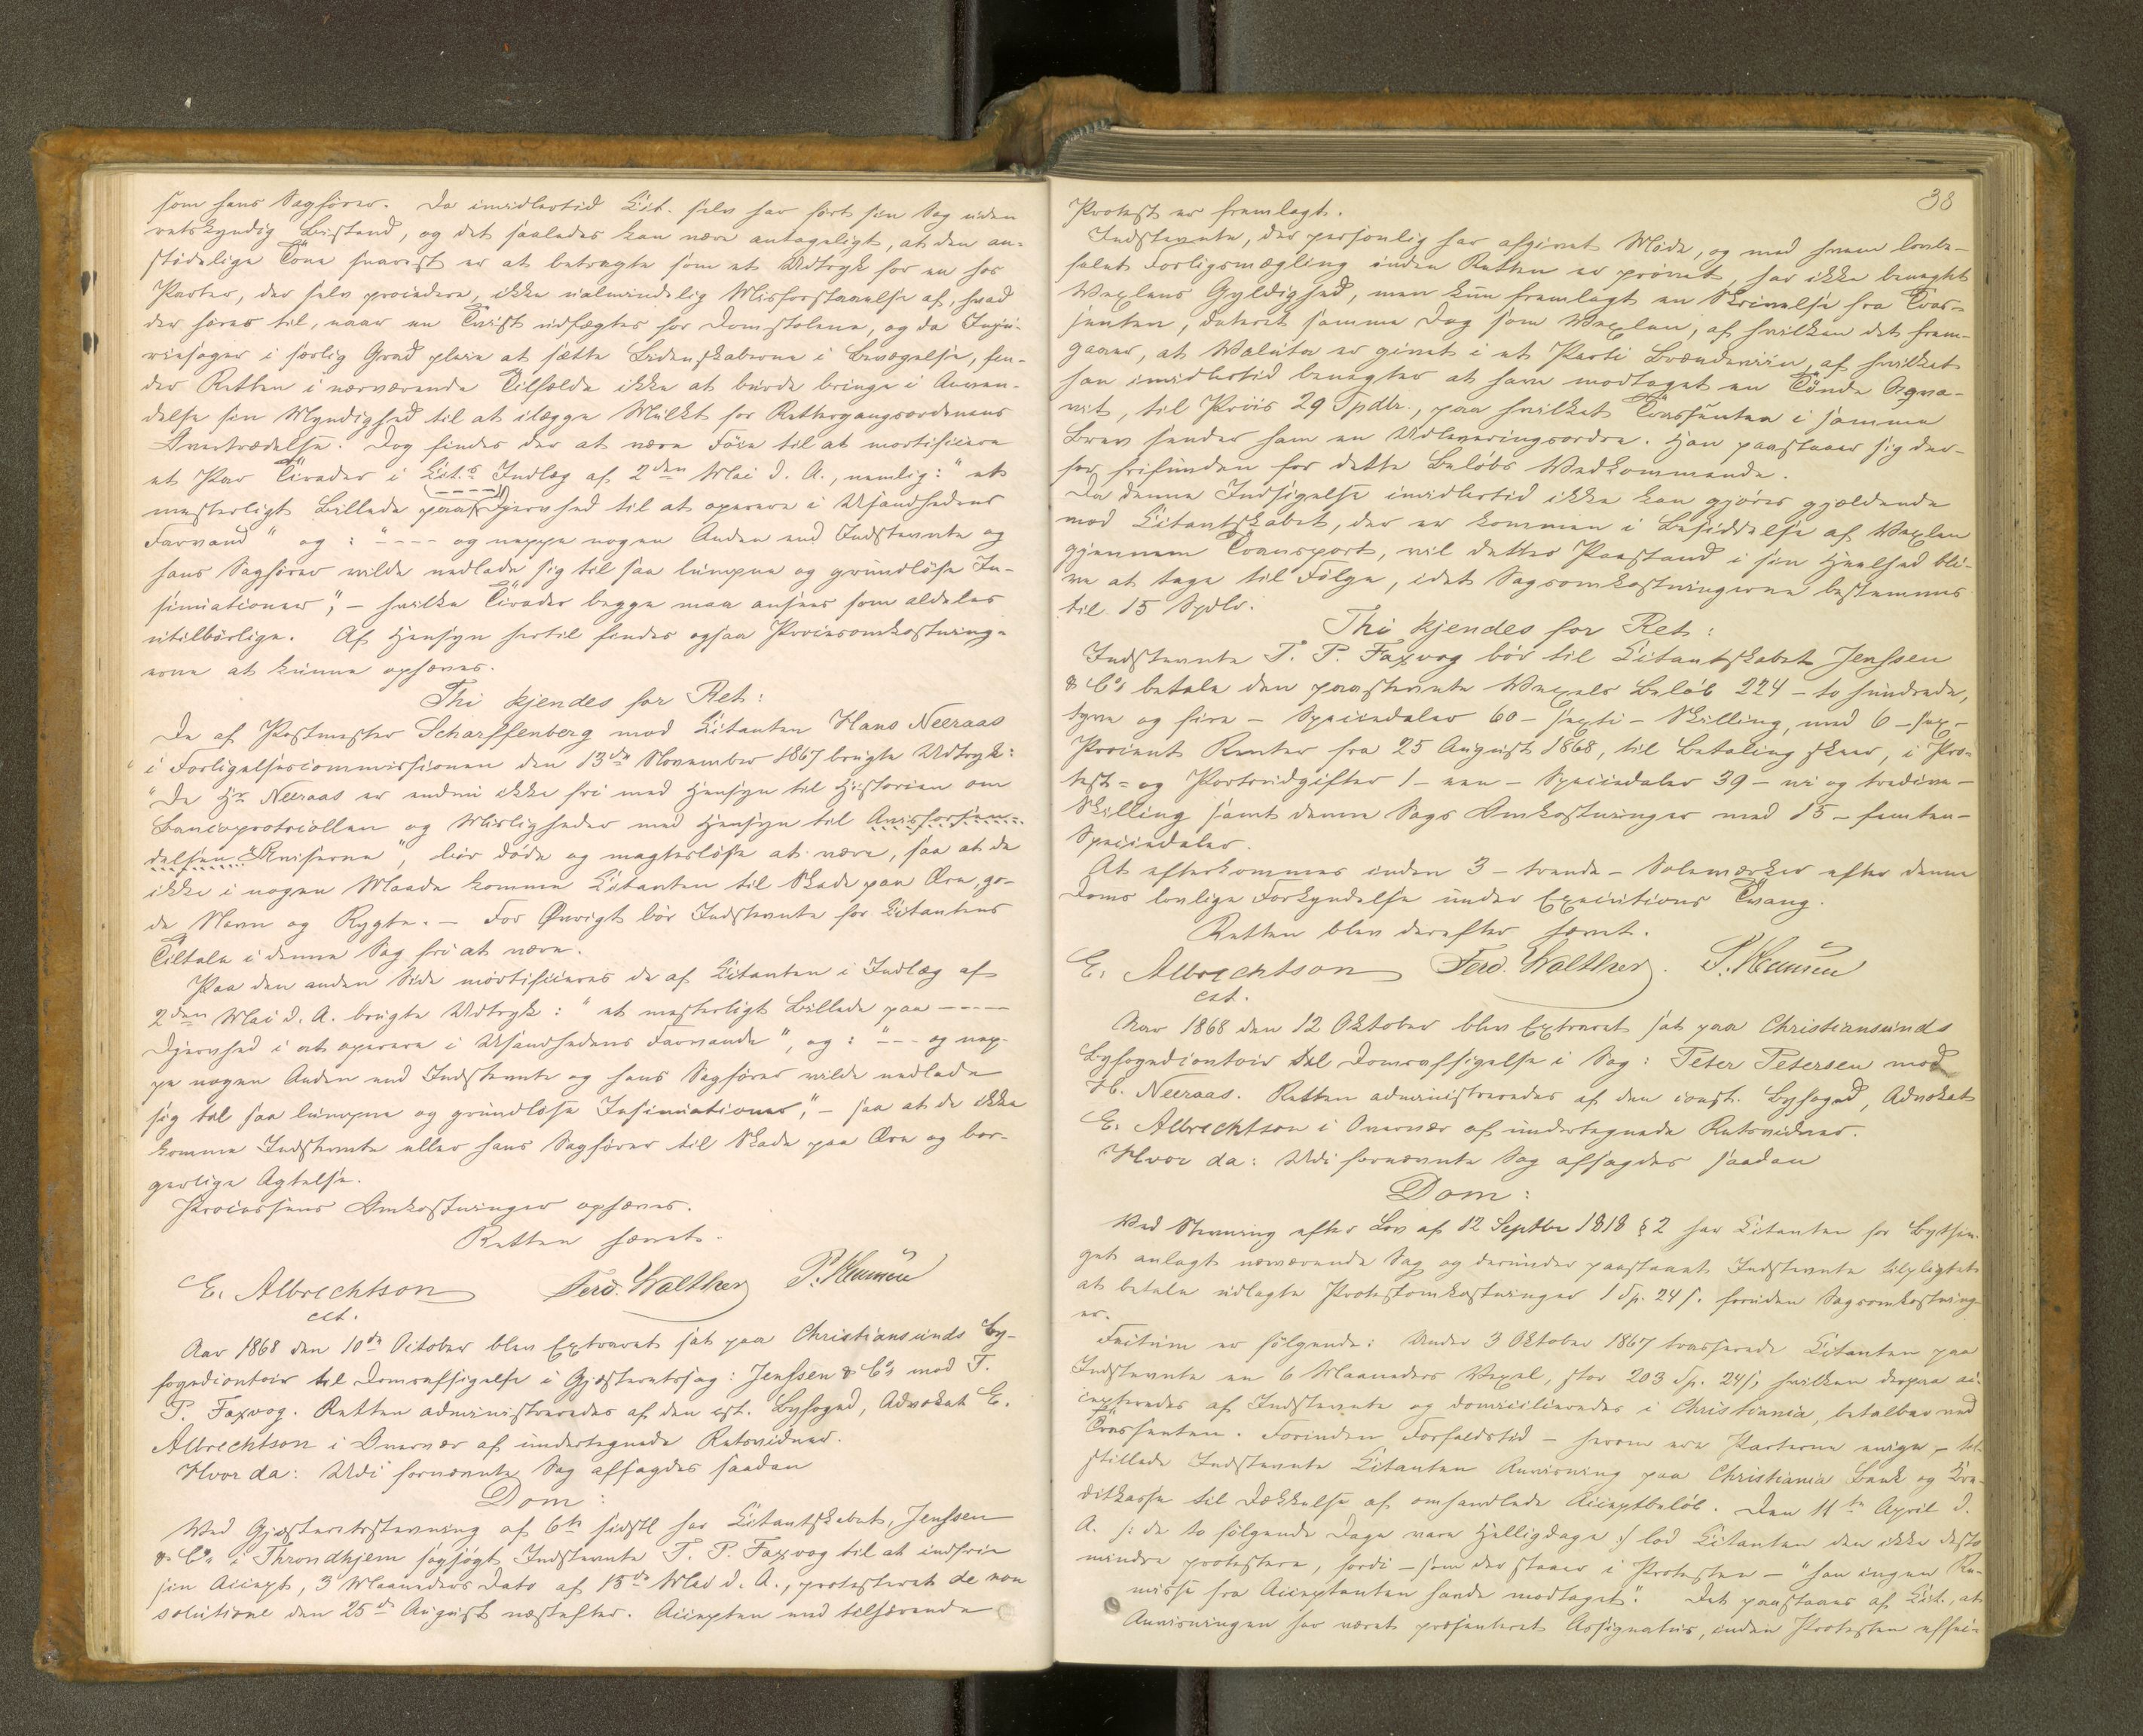 som hans Sagfører. Da imidlertid Cit. selv har ført sin Sag uden
retskyndig Bistand, og det saaledes kan være antageligt, at den an-
stødelige Tone snarest er at betragte som et Udtryk for en hos
Parter, der selv procedere, ikke ualmindelig Misforstaaelse af, hvad
der høres til, naar en Tvist udfægtes for Domstolene, og da Inju-
riesager i særlig Grad pleie at sætte Lidenskaberne i Bevægelse, fin-
der Retten i nærværende Tilfælde ikke at burde bringe i Anven-
delse sin Myndighed til at ilægge Mulkt for Rettergangsordenens
Overtrædelse. Dog findes der at være Føie til at mortificere
et Par Tirader i Cit.s Indlæg af 2den Mai d. A., nemlig: "et
mesterligt Billede paa ---- Djervhed til at operere i Usandhedens
Farvand" og: "---- og neppe nogen Anden end Indstevnte og
hans Sagfører vilde nedlade sig til saa lumpne og grundløse In-
sinuationer", - hvilke Tirader begge maa ansees som aldeles
utilbørlige. Af Hensyn hertil findes ogsaa Procesomkostning-
erne at kunne ophæves.
Thi kjendes for Ret:
De af Postmester Scharffenberg mod Citanten Hans Neeraas
i Forligelsescommissionen den 13de November 1867 brugte Udtryk:
"De Hr. Neeraas er endnu ikke fri med Hensyn til Historien om
Bancoprotocollen og Misligheder med Hensyn til Avisforsen-
delsen "Aviserne", bør døde og magtesløse at være, saa at de
ikke i nogen Maade komme Citanten til Skade paa Ære, go-
de Navn og Rygte. - For Øvrigt bør Indstevnte for Citantens
Tiltale i denne Sag fri at være.
Paa den anden Side mortificeres de af Citanten i Indlæg af
2den Mai d. A. brugte Udtryk: "et mesterligt Billede paa -----
Djervhed i at operere i Usandhedens Farvande", og: "--- og nep-
pe nogen Anden end Indstevnte og hans Sagfører vilde nedlade
sig til saa lumpne og grundløse Insinuationer", - saa at de ikke
komme Indstevnte eller hans Sagfører til Skade paa Ære og bor-
gerlige Agtelse.
Processens Omkostninger ophæves.
Retten hævet.
E. Albrechtson Ferd. Walther P. Hansen
cst.
Aar 1868 den 10de October blev Extraret sat paa Christiansunds By-
fogedcontoir til Domsafsigelse i Gjesteretssag: Jenssen & Co. mod T.
P. Faxvog. Retten administreredes af den cst. Byfoged, Advokat E.
Albrechtson i Overvær af undertegnede Retsvidner.
Hvor da: Udi fornævnte Sag afsagdes saadan
Dom:
Ved Gjesteretsstevning af 6te sidstl har Citantskabet, Jenssen
& Co. i Throndhjem sagsøgt Indstevnte T. P. Faxvog til at indfrie
sin Accept, 3 Maaneders Dato af 15de Mai d. A., protesteret de non
solutione den 25de August næstefter. Accepten med tilhørende
38
Protest er fremlagt.
Indstevnte, der personlig har afgivet Møde, og med hvem lovbe-
falet Forligsmægling inden Retten er prøvet, har ikke benegtet
Vexlens Gyldighed, men kun fremlagt en Skrivelse fra Tras-
senten, dateret samme Dag som Vexlen, af hvilken det frem-
gaaer, at Valuta er givet i et Parti Brændeviin, af hvilket
han imidlertid benegter at have modtaget en Tønde Aqva-
vit, til Priis 29 Spdlr., paa hvilket Trassenten i samme
Brev sender ham en Udleveringsordre. Han paastaaer sig der-
for frifunden for dette Beløbs Vedkommende.
Da denne Indsigelse imidlertid ikke kan gjøres gjældende
mod Citantskabet, der er kommen i Besiddelse af Vexlen
gjennem Transport, vil dettes Paastand i sin Heelhed bli-
ve at tage til Følge, idet Sagsomkostningerne bestemmes
til 15 Spdlr.
Thi kjendes for Ret:
Indstevnte T. P. Faxvog bør til Citantskabet Jenssen
& Co. betale den paastevnte Vexels Beløb 224 - to hundrede,
tyve og fire - Speciedaler 60 - sexti - Skilling, med 6 - sex -
Procent Renter fra 25 August 1868, til Betaling skeer, i Pro-
test- og Portoudgifter 1 - een - Speciedaler 39 - ni og tredive -
Skilling samt denne Sags Omkostninger med 15 - femten -
Speciedaler.
At efterkommes inden 3 - trende - Solemærker efter denne
Doms lovlige Forkyndelse under Executions Tvang.
Retten blev derefter hævet.
E. Albrechtson Ferd. Walther. P. Hansen
cst.
Aar 1868 den 12 Oktober blev Extraret sat paa Christiansunds
Byfogedcontoir til Domsafsigelse i Sag: Peter Petersen mod
H. Neeraas. Retten administreredes af den const. Byfoged, Advokat
E. Albrechtson i Overvær af undertegnede Retsvidner.
Hvor da: Udi fornævnte Sag afsagdes saadan
Dom:
Ved Stevning efter Lov af 12 Septbr 1818 § 2 har Citanten for Bythin-
get anlagt nærværende Sag og derunder paastaaet Indstevnte tilpligtet
at betale udlagte Protestomkostninger 1 Sp. 24 s. foruden Sagsomkostning-
er.
Factum er følgende: Under 3 Oktober 1867 trasserede Citanten paa
Indstevnte en 6 Maaneders Vexel, stor 203 Sp. 24 s, hvilken derpaa ac-
cepteredes af Indstevnte og domicilieredes i Christiania, betalbar ved
Trassenten. Forinden Forfaldstid - herom ere Parterne enige - til-
stillede Indstevnte Citanten Anvisning paa Christiania Bank og Cre-
ditkasse til Dækkelse af omhandlede Acceptbeløb. Den 11te April d.
A. /: de to følgende Dage vare Helligdage :/ lod Citanten den ikke desto
mindre protestere, fordi - som der staaer i Protesten - "han ingen Re-
misse fra Acceptanten havde modtaget". Det paastaaes af Cit., at
Anvisningen har været præsenteret Assignatus, inden Protesten effec-